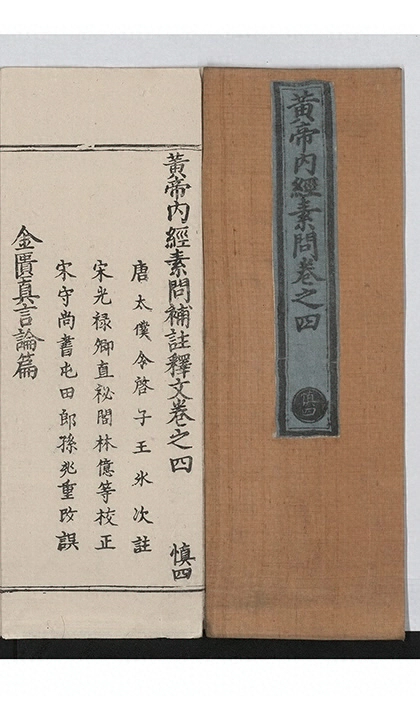 黃帝內經素問卷之四
慎四
黃帝內經素問補註釋文卷之四
慎四
唐太僕令啓子王氷次註
宋光祿卿直祕閣林億等校正
宋守尚書屯田郎孫兆重改誤
金匱真言論篇